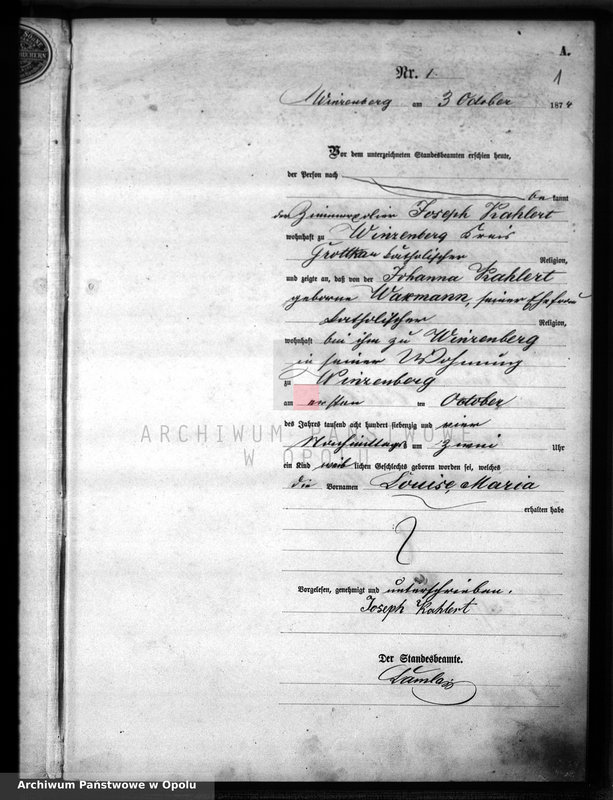 A.
Nr. 1.
1
Winzenberg am 3 October 1874
Vor dem unterzeichneten Standesbeamten erschien heute,
der Person nach
be kannt
der Zimmerpolier Joseph Kahlert
wohnhaft zu Winzenberg Kreis
Grottkau katholischer Religion,
und zeigte an, daß von der Johanna Kahlert
geborne Waxmann, seiner Ehefrau
katholischer Religion,
wohnhaft bei ihm zu Winzenberg
in seiner Wohnung
zu Winzenberg
am ersten ten October
des Jahres tausend acht hundert siebenzig und vier
Nachmittags um zwei Uhr
ein Kind weib lichen Geschlechts geboren worden sei, welches
die Vornamen Louise, Maria
erhalten habe
Vorgelesen, genehmigt und unterschrieben.
Joseph Kahlert
Der Standesbeamte.
ARCHIWUM PAŃSTWOWE
W OPOLU
Archiwum Państwowe w Opolu